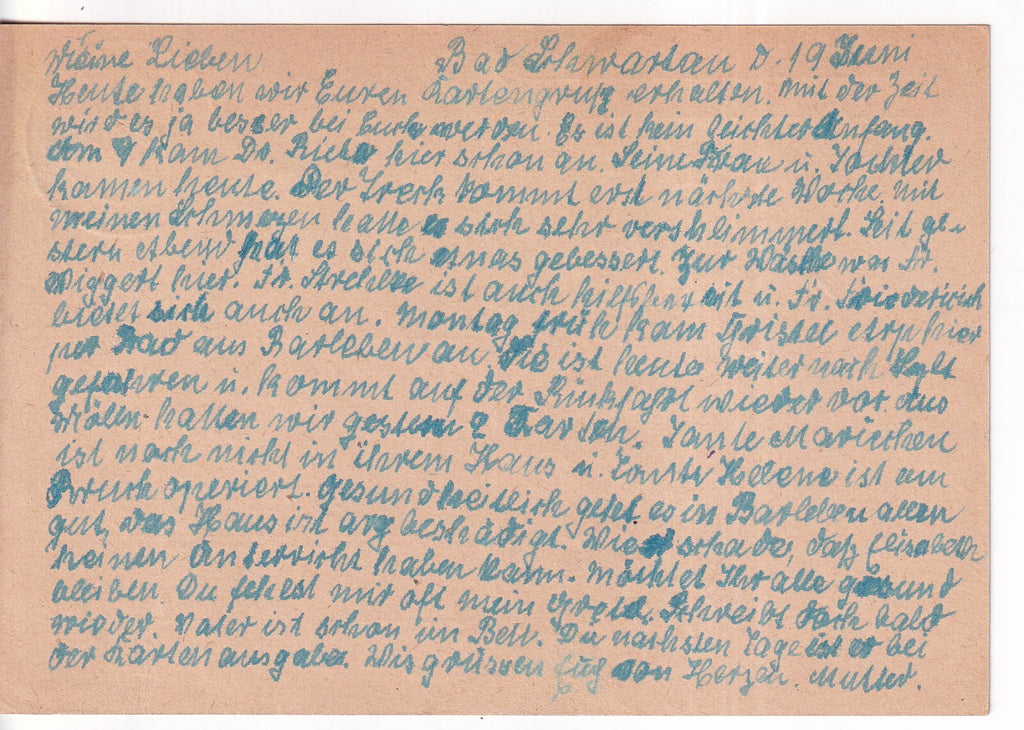 Meine Lieben Bad Schwartau d. 19 Juni
Heute haben wir Euren Kartengruß erhalten. Mit der Zeit
wird es ja besser bei Euch werden. Es ist kein leichter Anfang.
Am 9 kam Dr. hier schon an. Seine Frau u. Tochter
kamen heute. Der Treck kommt erst nächste Woche. Mit
meinen Schmerzen hatte es sich sehr verschlimmert. Seit ge-
stern Abend hat es sich etwas gebessert. Zur Wäsche war Fr.
Wiggert hier. Fr. ist auch hilfsbereit u. Fr. Friederich
bietet sich auch an. Montag früh kam hier
per Rad aus Barleben an. Sie ist heute weiter nach
gefahren u. kommt auf der Rückfahrt wieder vor. Aus
Mölln hatten wir gestern 2 Karten. Tante Mariechen
ist noch nicht in ihrem Haus u. Tante Helene ist am
Bruch operiert. Gesundheitlich geht es in Barleben allen
gut, das Haus ist arg beschädigt. Wie schade, daß Elisabeth
keinen Unterricht haben kann. Möchtet Ihr alle gesund
bleiben. Du fehlst mir oft mein Schreibt doch bald
wieder. Vater ist schon im Bett. Die nächsten Tage ist er bei
der Kartenausgabe. Wir grüssen Euch von Herzen. Mutter.